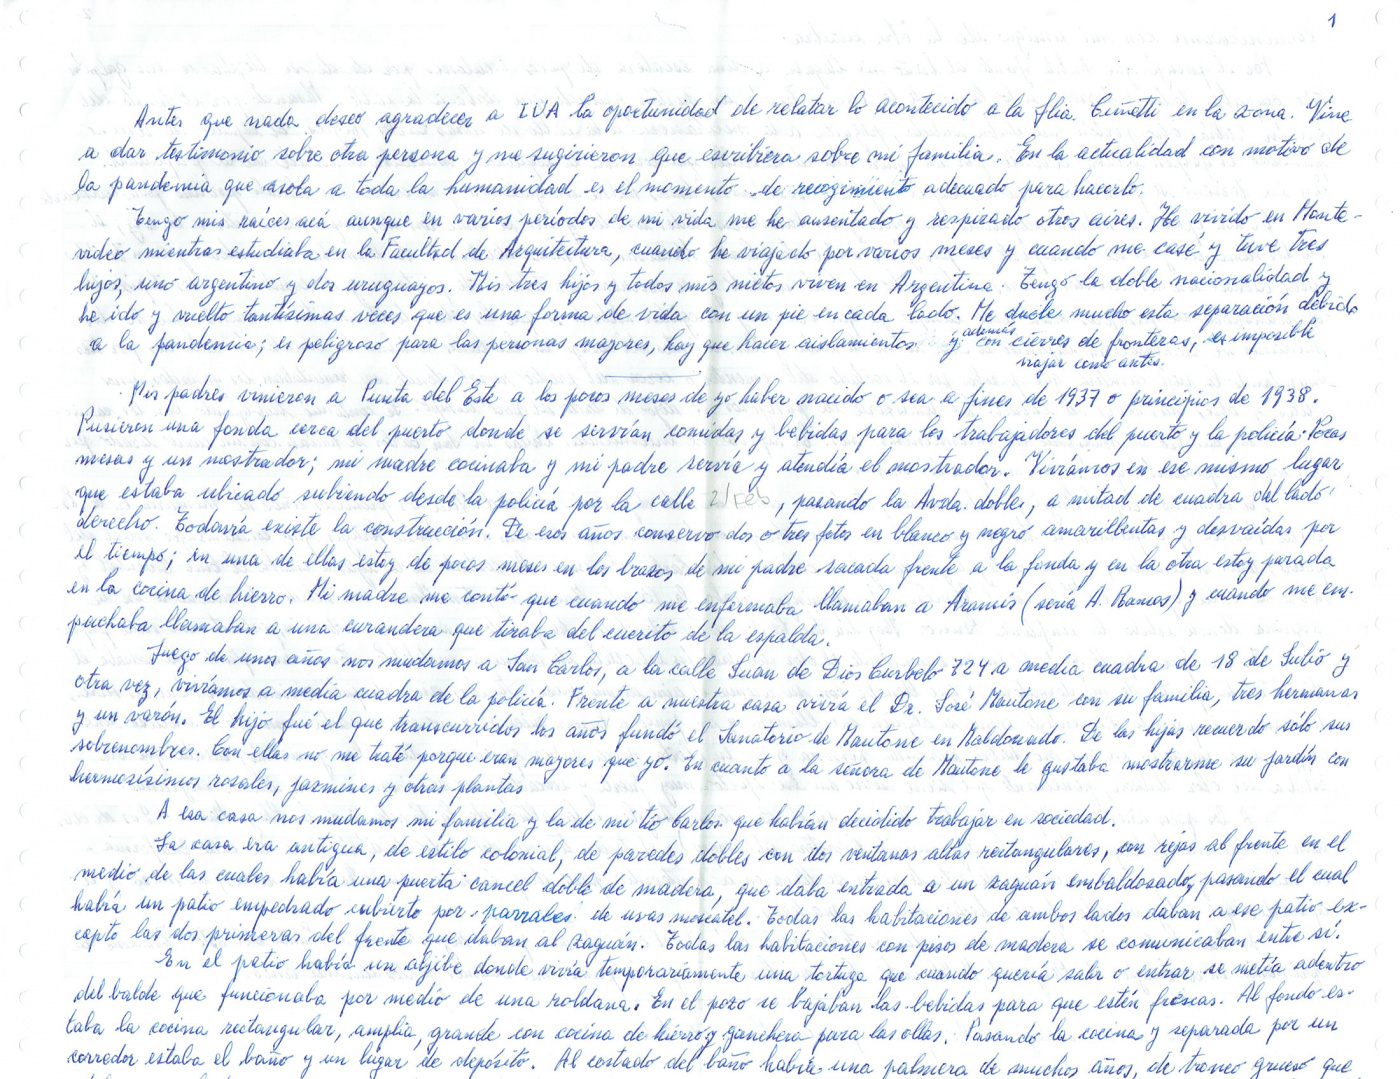 1
Antes que nada deseo agradecer a IUA la oportunidad de relatar lo acontecido a la flia. Cuñetti en la zona. Vine
a dar testimonio sobre otra persona y me sugirieron que escribiera sobre mi familia. En la actualidad con motivo de
la pandemia que asola a toda la humanidad es el momento de recogimiento adecuado para hacerlo.
Tengo mis raíces acá aunque en varios períodos de mi vida me he ausentado y respirado otros aires. He vivido en Monte-
video mientras estudiaba en la Facultad de Arquitectura, cuando he viajado por varios meses y cuando me casé y tuve tres
hijos, uno argentino y dos uruguayos. Mis tres hijos y todos mis nietos viven en Argentina. Tengo la doble nacionalidad y
he ido y vuelto tantísimas veces que es una forma de vida con un pie en cada lado. Me duele mucho esta separación debido
a la pandemia; es peligroso para las personas mayores, hay que hacer aislamientos y además con cierres de fronteras, es imposible
viajar como antes.
Mis padres vinieron a Punta del Este a los pocos meses de yo haber nacido o sea a fines de 1937 o principios de 1938.
Pusieron una fonda cerca del puerto donde se servían comidas y bebidas para los trabajadores del puerto y la policía. Pocas
mesas y un mostrador; mi madre cocinaba y mi padre servía y atendía el mostrador. Vivíamos en ese mismo lugar
que estaba ubicado subiendo desde la policía por la calle 2/Feb, pasando la Avda. doble, a mitad de cuadra del lado
derecho. Todavía existe la construcción. De esos años conservo dos o tres fotos en blanco y negro amarillentas y desvaídas por
el tiempo; en una de ellas estoy de pocos meses en los brazos de mi padre sacada frente a la fonda y en la otra estoy parada
en la cocina de hierro. Mi madre me contó que cuando me enfermaba llamaban a Aramís (sería A. Ramos) y cuando me em-
pachaba llamaban a una curandera que tiraba del cuerito de la espalda.
Luego de unos años nos mudamos a San Carlos, a la calle Juan de Dios Curbelo 724 a media cuadra de 18 de Julio y
otra vez, vivíamos a media cuadra de la policía. Frente a nuestra casa vivía el Dr. José Mautone con su familia, tres hermanas
y un varón. El hijo fué el que transcurridos los años fundó el Sanatorio de Mautone en Maldonado. De las hijas recuerdo sólo sus
sobrenombres. Con ellas no me traté porque eran mayores que yo. En cuanto a la señora de Mautone le gustaba mostrarme su jardín con
hermosísimos rosales, jazmines y otras plantas
A esa casa nos mudamos mi familia y la de mi tío Carlos que habían decidido trabajar en sociedad.
La casa era antigua, de estilo colonial, de paredes dobles con dos ventanas altas rectangulares, con rejas al frente en el
medio de las cuales había una puerta cancel doble de madera, que daba entrada a un zaguán embaldosado, pasando el cual
había un patio empedrado cubierto por parrales de uvas moscatel. Todas las habitaciones de ambos lados daban a ese patio ex-
cepto las dos primeras del frente que daban al zaguán. Todas las habitaciones con pisos de madera se comunicaban entre sí.
En el patio había un aljibe donde vivía temporariamente una tortuga que cuando quería salir o entrar se metía adentro
del balde que funcionaba por medio de una roldana. En el pozo se bajaban las bebidas para que estén frescas. Al fondo es-
taba la cocina rectangular, amplia, grande con cocina de hierro y ganchera para las ollas. Pasando la cocina y separada por un
corredor estaba el baño y un lugar de depósito. Al costado del baño había una palmera de muchos años, de tronco grueso que